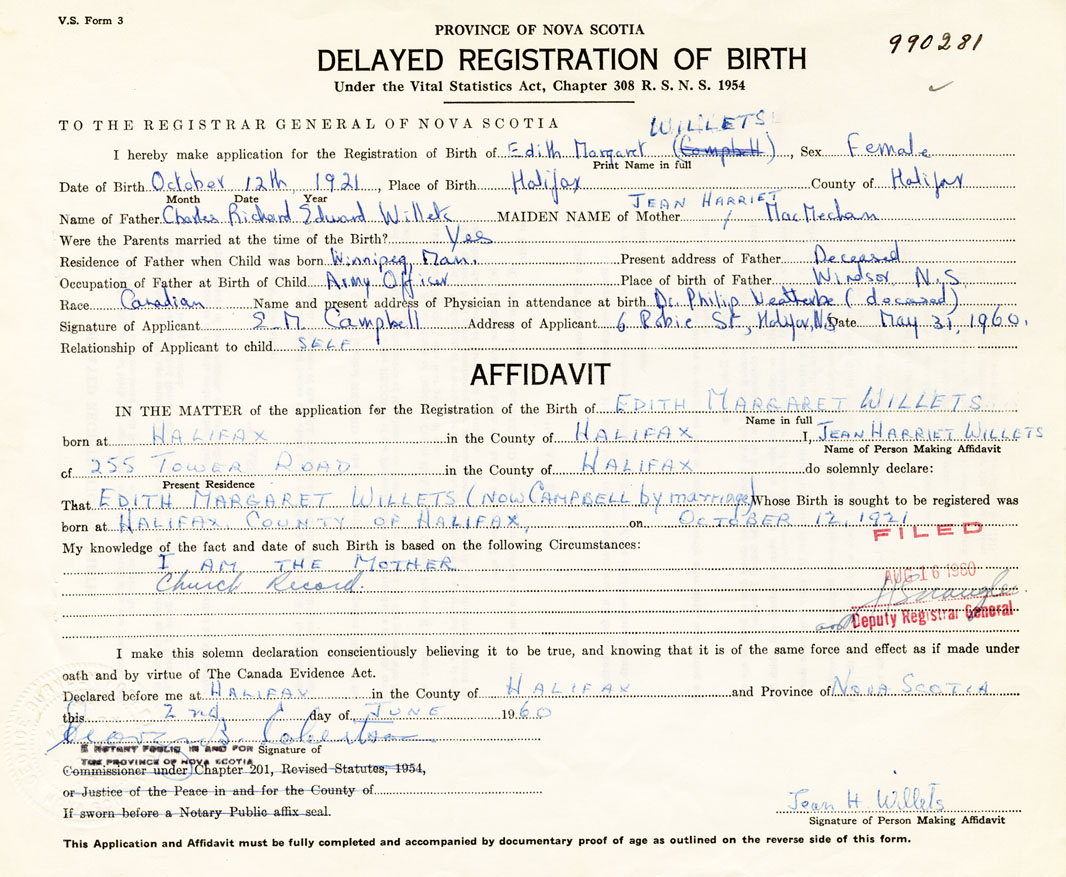 V.S. Form 3
990281
PROVINCE OF NOVA SCOTIA
DELAYED REGISTRATION OF BIRTH
Under the Vital Statistics Act, Chapter 308 R. S. N. S. 1954
TO THE REGISTRAR GENERAL OF NOVA SCOTIA
WILLETS
I hereby make application for the Registration of Birth of Edith Margaret (Campbell), Sex Female
Print Name in full
Date of Birth October 12th 1921, Place of Birth Halifax County of Halifax
Month Date Year
JEAN HARRIET
Name of Father Charles Richard Edward Willets MAIDEN NAME of Mother MacMechan
Were the Parents married at the time of the Birth? Yes
Residence of Father when Child was born Winnipeg, Man. Present address of Father Deceased
Occupation of Father at Birth of Child Army Officer Place of birth of Father Windsor N.S.
Race Canadian Name and present address of Physician in attendance at birth Dr. Philip Weatherbe (deceased)
Signature of Applicant E. M. Campbell Address of Applicant 6 Robie St., Halifax, N.S. Date May 31, 1960.
Relationship of Applicant to child SELF
AFFIDAVIT
IN THE MATTER of the application for the Registration of the Birth of EDITH MARGARET WILLETS
Name in full
born at HALIFAX in the County of HALIFAX I, JEAN HARRIET WILLETS
Name of Person Making Affidavit
of 255 TOWER ROAD in the County of HALIFAX do solemnly declare:
Present Residence
That EDITH MARGARET WILLETS (NOW CAMPBELL by marriage) Whose Birth is sought to be registered was
born at HALIFAX, COUNTY OF HALIFAX, on OCTOBER 12, 1921
FILED
My knowledge of the fact and date of such Birth is based on the following Circumstances:
I AM THE MOTHER
Church Record.
AUG 16 1960
Deputy Registrar General
I make this solemn declaration conscientiously believing it to be true, and knowing that it is of the same force and effect as if made under
oath and by virtue of The Canada Evidence Act.
Declared before me at HALIFAX in the County of HALIFAX and Province of NOVA SCOTIA
this 2nd. day of JUNE 1960
A NOTARY PUBLIC IN AND FOR Signature of
THE PROVINCE OF NOVA SCOTIA
Commissioner under Chapter 201, Revised Statutes, 1954,
or Justice of the Peace in and for the County of
If sworn before a Notary Public affix seal.
Jean H. Willets
Signature of Person Making Affidavit
This Application and Affidavit must be fully completed and accompanied by documentary proof of age as outlined on the reverse side of this form.